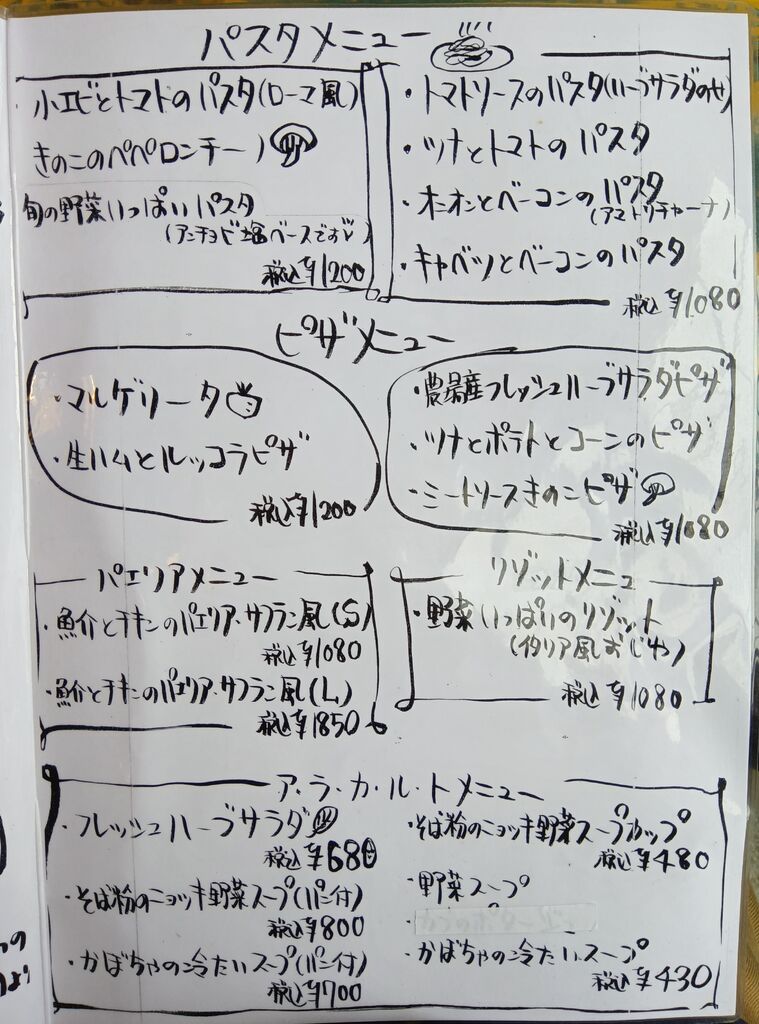 パスタメニュー
小エビとトマトのパスタ(ローマ風)
きのこのペペロンチーノ
旬の野菜いっぱいパスタ
(アンチョビ塩ベースです♡)
税込¥1200
・トマトソースのパスタ(ハーブサラダのせ)
・ツナとトマトのパスタ
・オニオンとベーコンのパスタ
(アマトリチャーナ)
・キャベツとベーコンのパスタ
税込¥1080
ピザメニュー
・マルゲリータ
・生ハムとルッコラピザ
税込¥1200
・農場産フレッシュハーブサラダピザ
・ツナとポテトとコーンのピザ
・ミートソースきのこピザ
税込¥1080
パエリアメニュー
・魚介とチキンのパエリア・サフラン風(S)
税込¥1080
・魚介とチキンのパエリア・サフラン風(L)
税込¥1850
リゾットメニュ
・野菜いっぱいのリゾット
(イタリア風おじや)
税込¥1080
ア・ラ・カ・ル・トメニュー
・フレッシュハーブサラダ
税込¥680
・そば粉のニョッキ野菜スープ(パン付)
税込¥800
・かぼちゃの冷たいスープ(パン付)
税込¥700
・そば粉のニョッキ野菜スープカップ
税込¥480
・野菜スープ
・かぼちゃの冷たいスープ
税込¥430